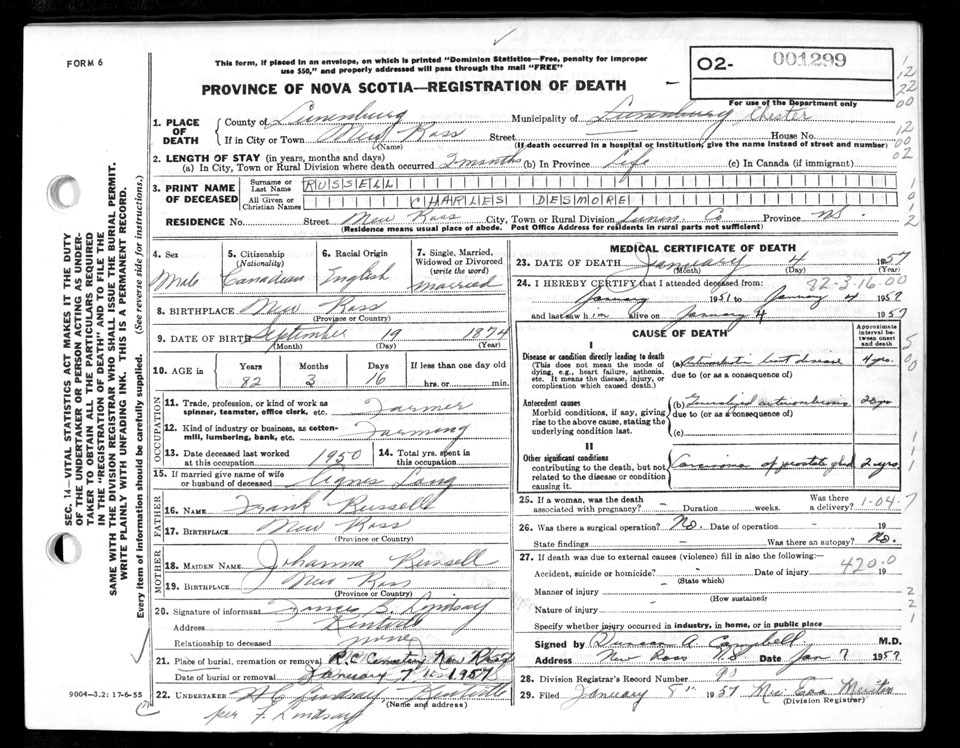 FORM 6
This form, if placed in an envelope, on which is printed "Dominion Statistics—Free, penalty for improper
use $50," and properly addressed will pass through the mail "FREE"
PROVINCE OF NOVA SCOTIA—REGISTRATION OF DEATH
O2- 001299
For use of the Department only
1. PLACE OF DEATH
County of Lunenburg Municipality of Lunenburg Chester
If in City or Town New Ross Street House No.
(Name) (If death occurred in a hospital or institution, give name instead of street and number)
2. LENGTH OF STAY (in years, months and days)
(a) In City, Town or Rural Division where death occurred 2 months (b) In Province Life (c) In Canada (if immigrant)
3. PRINT NAME OF DECEASED
Surname or Last Name RUSSELL
All Given or Christian Names CHARLES DESMORE
RESIDENCE No. Street New Ross City, Town or Rural Division Lunen. Co Province NS.
(Residence means usual place of abode. Post Office Address for residents in rural parts not sufficient)
4. Sex Male
5. Citizenship (Nationality) Canadian
6. Racial Origin English
7. Single, Married, Widowed or Divorced (write the word) married
8. BIRTHPLACE New Ross
(Province or Country)
9. DATE OF BIRTH September 19 1874
(Month) (Day) (Year)
10. AGE in Years Months Days If less than one day old
82 3 16 hrs. or min.
OCCUPATION
11. Trade, profession, or kind of work as
spinner, teamster, office clerk, etc. Farmer
12. Kind of industry or business, as cotton-
mill, lumbering, bank, etc. Farming
13. Date deceased last worked
at this occupation 1950
14. Total yrs. spent in
this occupation
15. If married give name of wife
or husband of deceased Agnes Long
FATHER
16. Name Frank Russell
17. BIRTHPLACE New Ross
(Province or Country)
MOTHER
18. MAIDEN NAME Johanna Russell
19. BIRTHPLACE New Ross
(Province or Country)
20. Signature of informant B. Lindsay
Address Kentville
Relationship to deceased none
21. Place of burial, cremation or removal R.C. Cemetery New Ross
Date of burial or removal January 7 1957
22. UNDERTAKER Lindsay Kentville
(Name and Address)
per F. Lindsay
MEDICAL CERTIFICATE OF DEATH
23. DATE OF DEATH January 4 1957
(Month) (Day) (Year)
82-3-16.00
24. I HEREBY CERTIFY that I attended deceased from:
January 1951 to January 4 1957
and last saw him alive on January 4 1957
CAUSE OF DEATH
Approximate interval between onset and death
I
Disease or condition directly leading to death
(This does not mean the mode of dying, e.g., heart failure, asthenia, etc. It means the disease, injury, or complication which caused death.)
(a) heart disease 4 yrs.
due to (or as a consequence of)
Antecedent causes
Morbid conditions, if any, giving rise to the above cause, stating the underlying condition last.
(b) Generalized arteriosclerosis 20 yrs
due to (or as a consequence of)
(c)
II
Other significant conditions
contributing to the death, but not related to the disease or condition causing it.
Carcinoma of prostate gland 2 yrs.
25. If a woman, was the death
associated with pregnancy? - Duration weeks. Was there a delivery?
1-04-7
26. Was there a surgical operation? No. Date of operation - 19
State findings - Was there an autopsy? No.
27. If death was due to external causes (violence) fill in also the following:
Accident, suicide or homicide? - Date of injury 19
(State which) 420.0
Manner of injury
(How sustained)
Nature of injury
Specify whether injury occurred in industry, in home, or in public place
Signed by Duncan A Campbell M.D.
Address New Ross N.S. Date Jan 7 1957
28. Division Registrar's Record Number 90
29. Filed January 8" 1957 Mrs. Eva
(Division Registrar)
SEC. 14—VITAL STATISTICS ACT MAKES IT THE DUTY
OF THE UNDERTAKER OR PERSON ACTING AS UNDER-
TAKER TO OBTAIN ALL THE PARTICULARS REQUIRED
IN THE "REGISTRATION OF DEATH" AND TO FILE THE
SAME WITH THE DIVISION REGISTRAR WHO SHALL ISSUE THE BURIAL PERMIT.
WRITE PLAINLY WITH UNFADING INK. THIS IS A PERMANENT RECORD.
Every item of information should be carefully supplied. (See reverse side for instructions.)
9004-3.2: 17-6-55